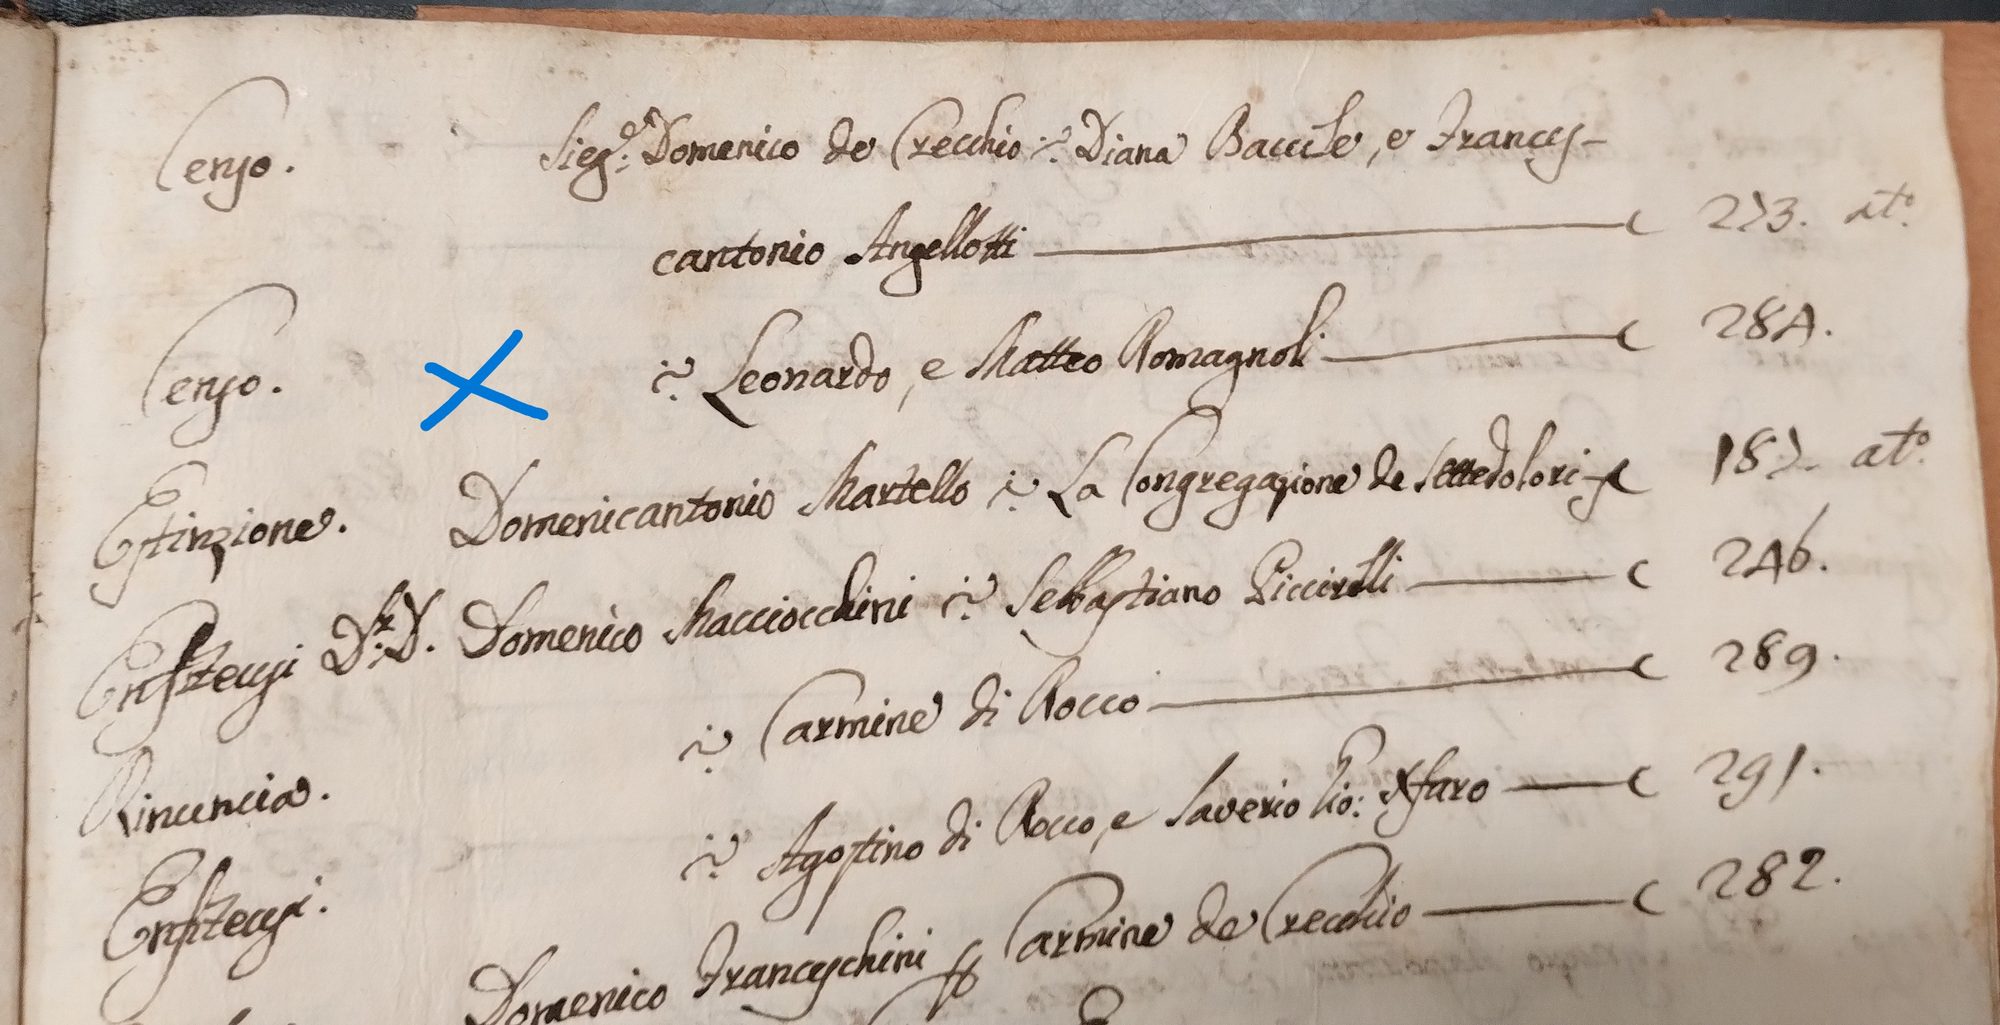 Censo. Sieg.d Domenico de Crecchio :~ Diana Baccile, e Frances-
cantonio Angellotti 273. at.o
Censo. :~ Leonardo, e Matteo Romagnoli 284.
Estinzione. Domenicantonio Martello :~ La Congregazione de Settedolori 187. at.o
Enfiteusi D.r D. Domenico Macciocchini :~ Sebbastiano Piccirelli 246.
Rinuncia. :~ Carmine di Rocco 289.
Enfiteusi. :~ Agostino di Rocco, e Saverio Pio: 291.
Domenico Franceschini Carmine de Crecchio 282.